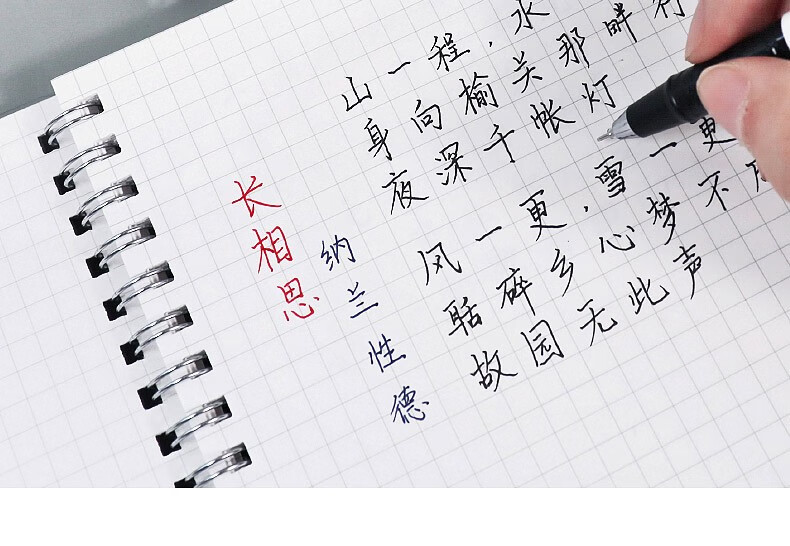 长相思
纳兰性德
山一程，水
身向榆关那畔行
夜深千帐灯
风一更，雪一更
聒碎乡心梦不
故园无此声